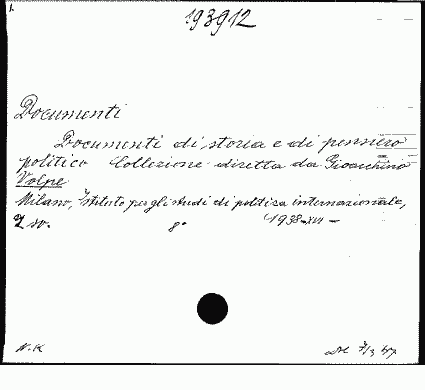 1.
193912
Documenti
Documenti di storia e di pensiero
politico Collezione diretta da Gioacchino
Volpe
Milano, Istituto per gli studi di politica internazionale,
8° 1938-XVI -
N.K